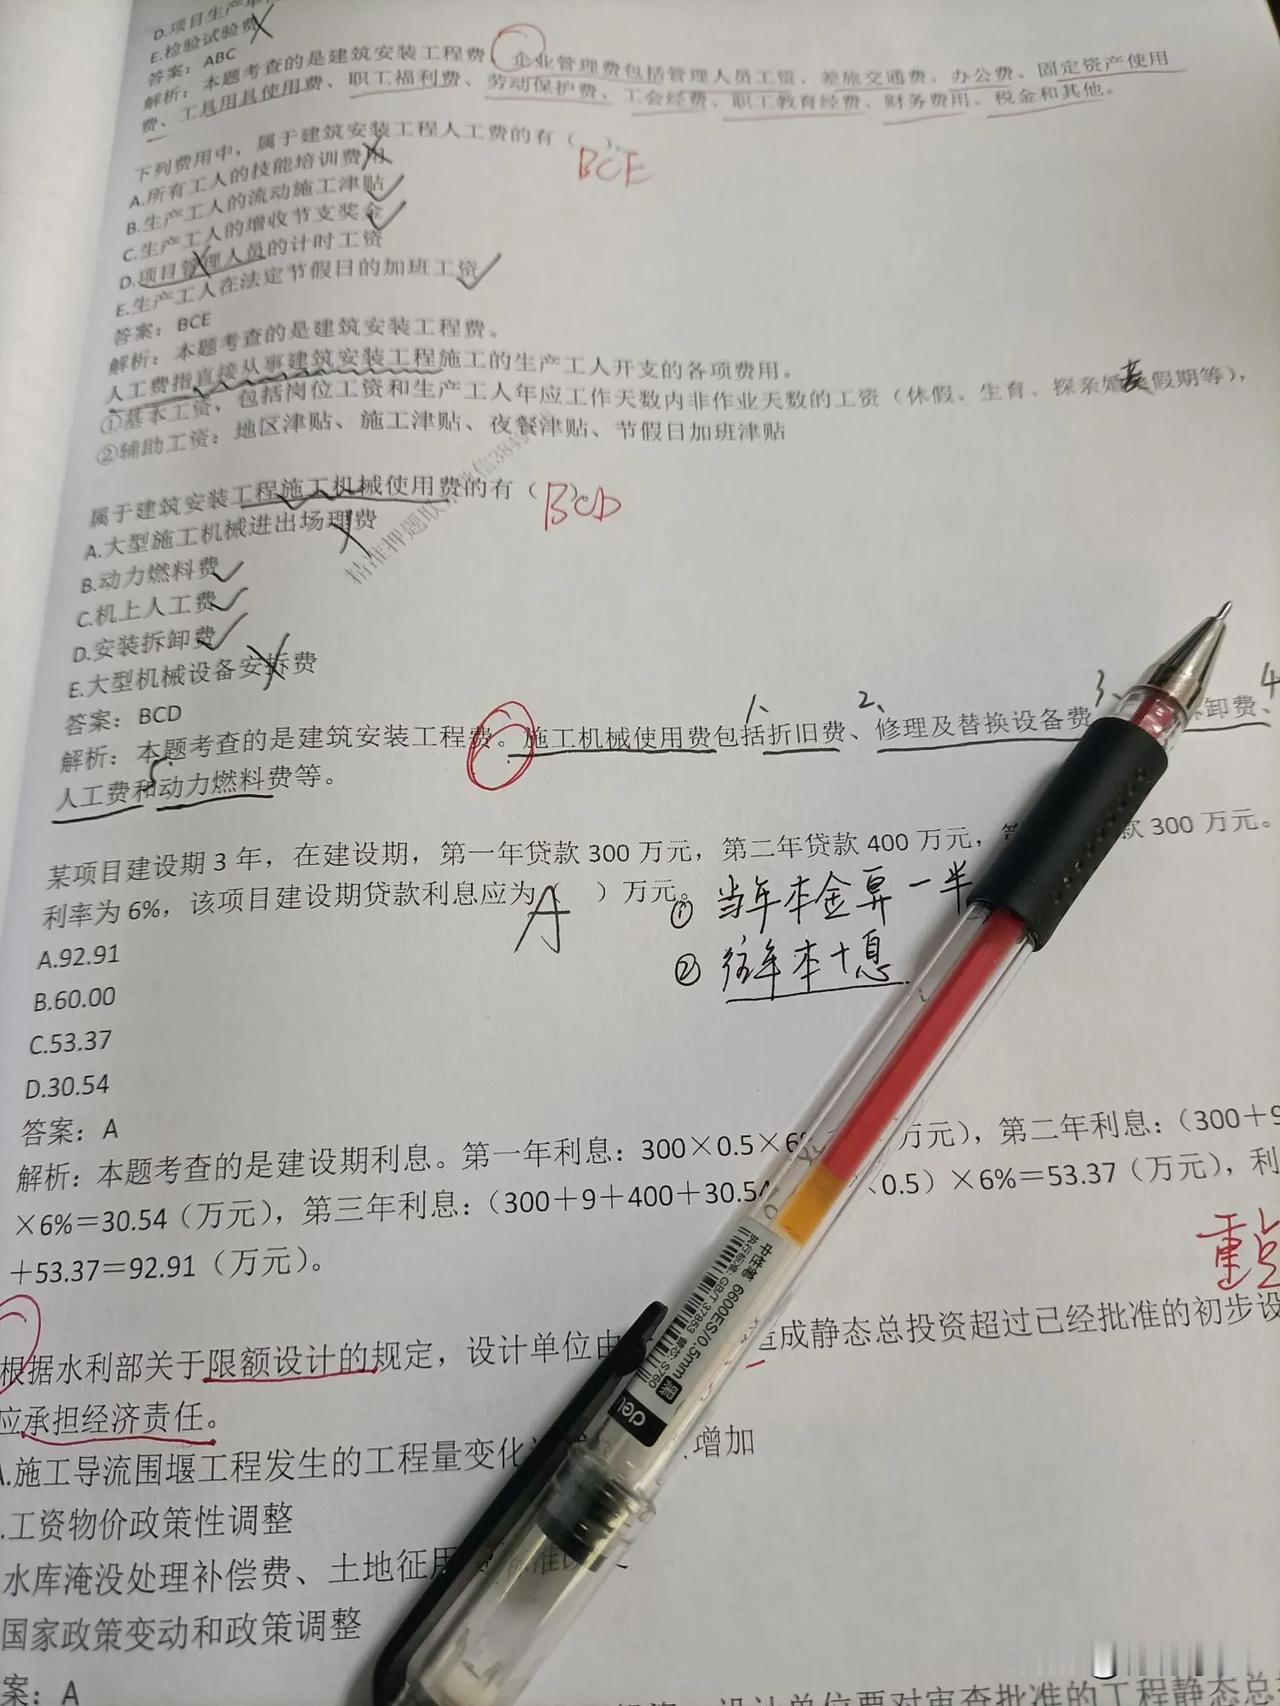 D.项目生产
E.检验试验费
答案：ABC
解析：本题考查的是建筑安装工程费。企业管理费包括管理人员工资、差旅交通费、办公费、固定资产使用
费、工具用具使用费、职工福利费、劳动保护费、工会经费、职工教育经费、财务费用、税金和其他。
下列费用中，属于建筑安装工程人工费的有（ ）。 BCE
A.所有工人的技能培训费用
B.生产工人的流动施工津贴
C.生产工人的增收节支奖金
D.项目管理人员的计时工资
E.生产工人在法定节假日的加班工资
答案：BCE
解析：本题考查的是建筑安装工程费。
人工费指直接从事建筑安装工程施工的生产工人开支的各项费用。
①基本工资，包括岗位工资和生产工人年应工作天数内非作业天数的工资（休假、生育、探亲婚丧假期等），
②辅助工资：地区津贴、施工津贴、夜餐津贴、节假日加班津贴
属于建筑安装工程施工机械使用费的有（ ） BCD
A.大型施工机械进出场理费
B.动力燃料费
C.机上人工费
D.安装拆卸费
E.大型机械设备安拆费
精准押题联
答案：BCD
1、 2、 3、 4
解析：本题考查的是建筑安装工程费。施工机械使用费包括折旧费、修理及替换设备费 卸费、
5
人工费和动力燃料费等。
某项目建设期 3 年，在建设期，第一年贷款 300 万元，第二年贷款 400 万元， 款 300 万元。
利率为 6%，该项目建设期贷款利息应为（ ）万元。 A
① 当年本金算一半
② 往年本十息
A.92.91
B.60.00
C.53.37
D.30.54
答案：A
解析：本题考查的是建设期利息。第一年利息：300×0.5×6 万元），第二年利息：（300＋9
×6%＝30.54（万元），第三年利息：（300＋9＋400＋30.54 ×0.5）×6%＝53.37（万元），利
＋53.37＝92.91（万元）。
重点
根据水利部关于限额设计的规定，设计单位由 造成静态总投资超过已经批准的初步设
应承担经济责任。
A.施工导流围堰工程发生的工程量变化 增加
.工资物价政策性调整
水库淹没处理补偿费、土地征用
国家政策变动和政策调整
案：A
设计单位要对审查批准的工程静态总
中性笔 6600ES/0.5mm 黑
执行标准：GB/T 37853 S760
deli